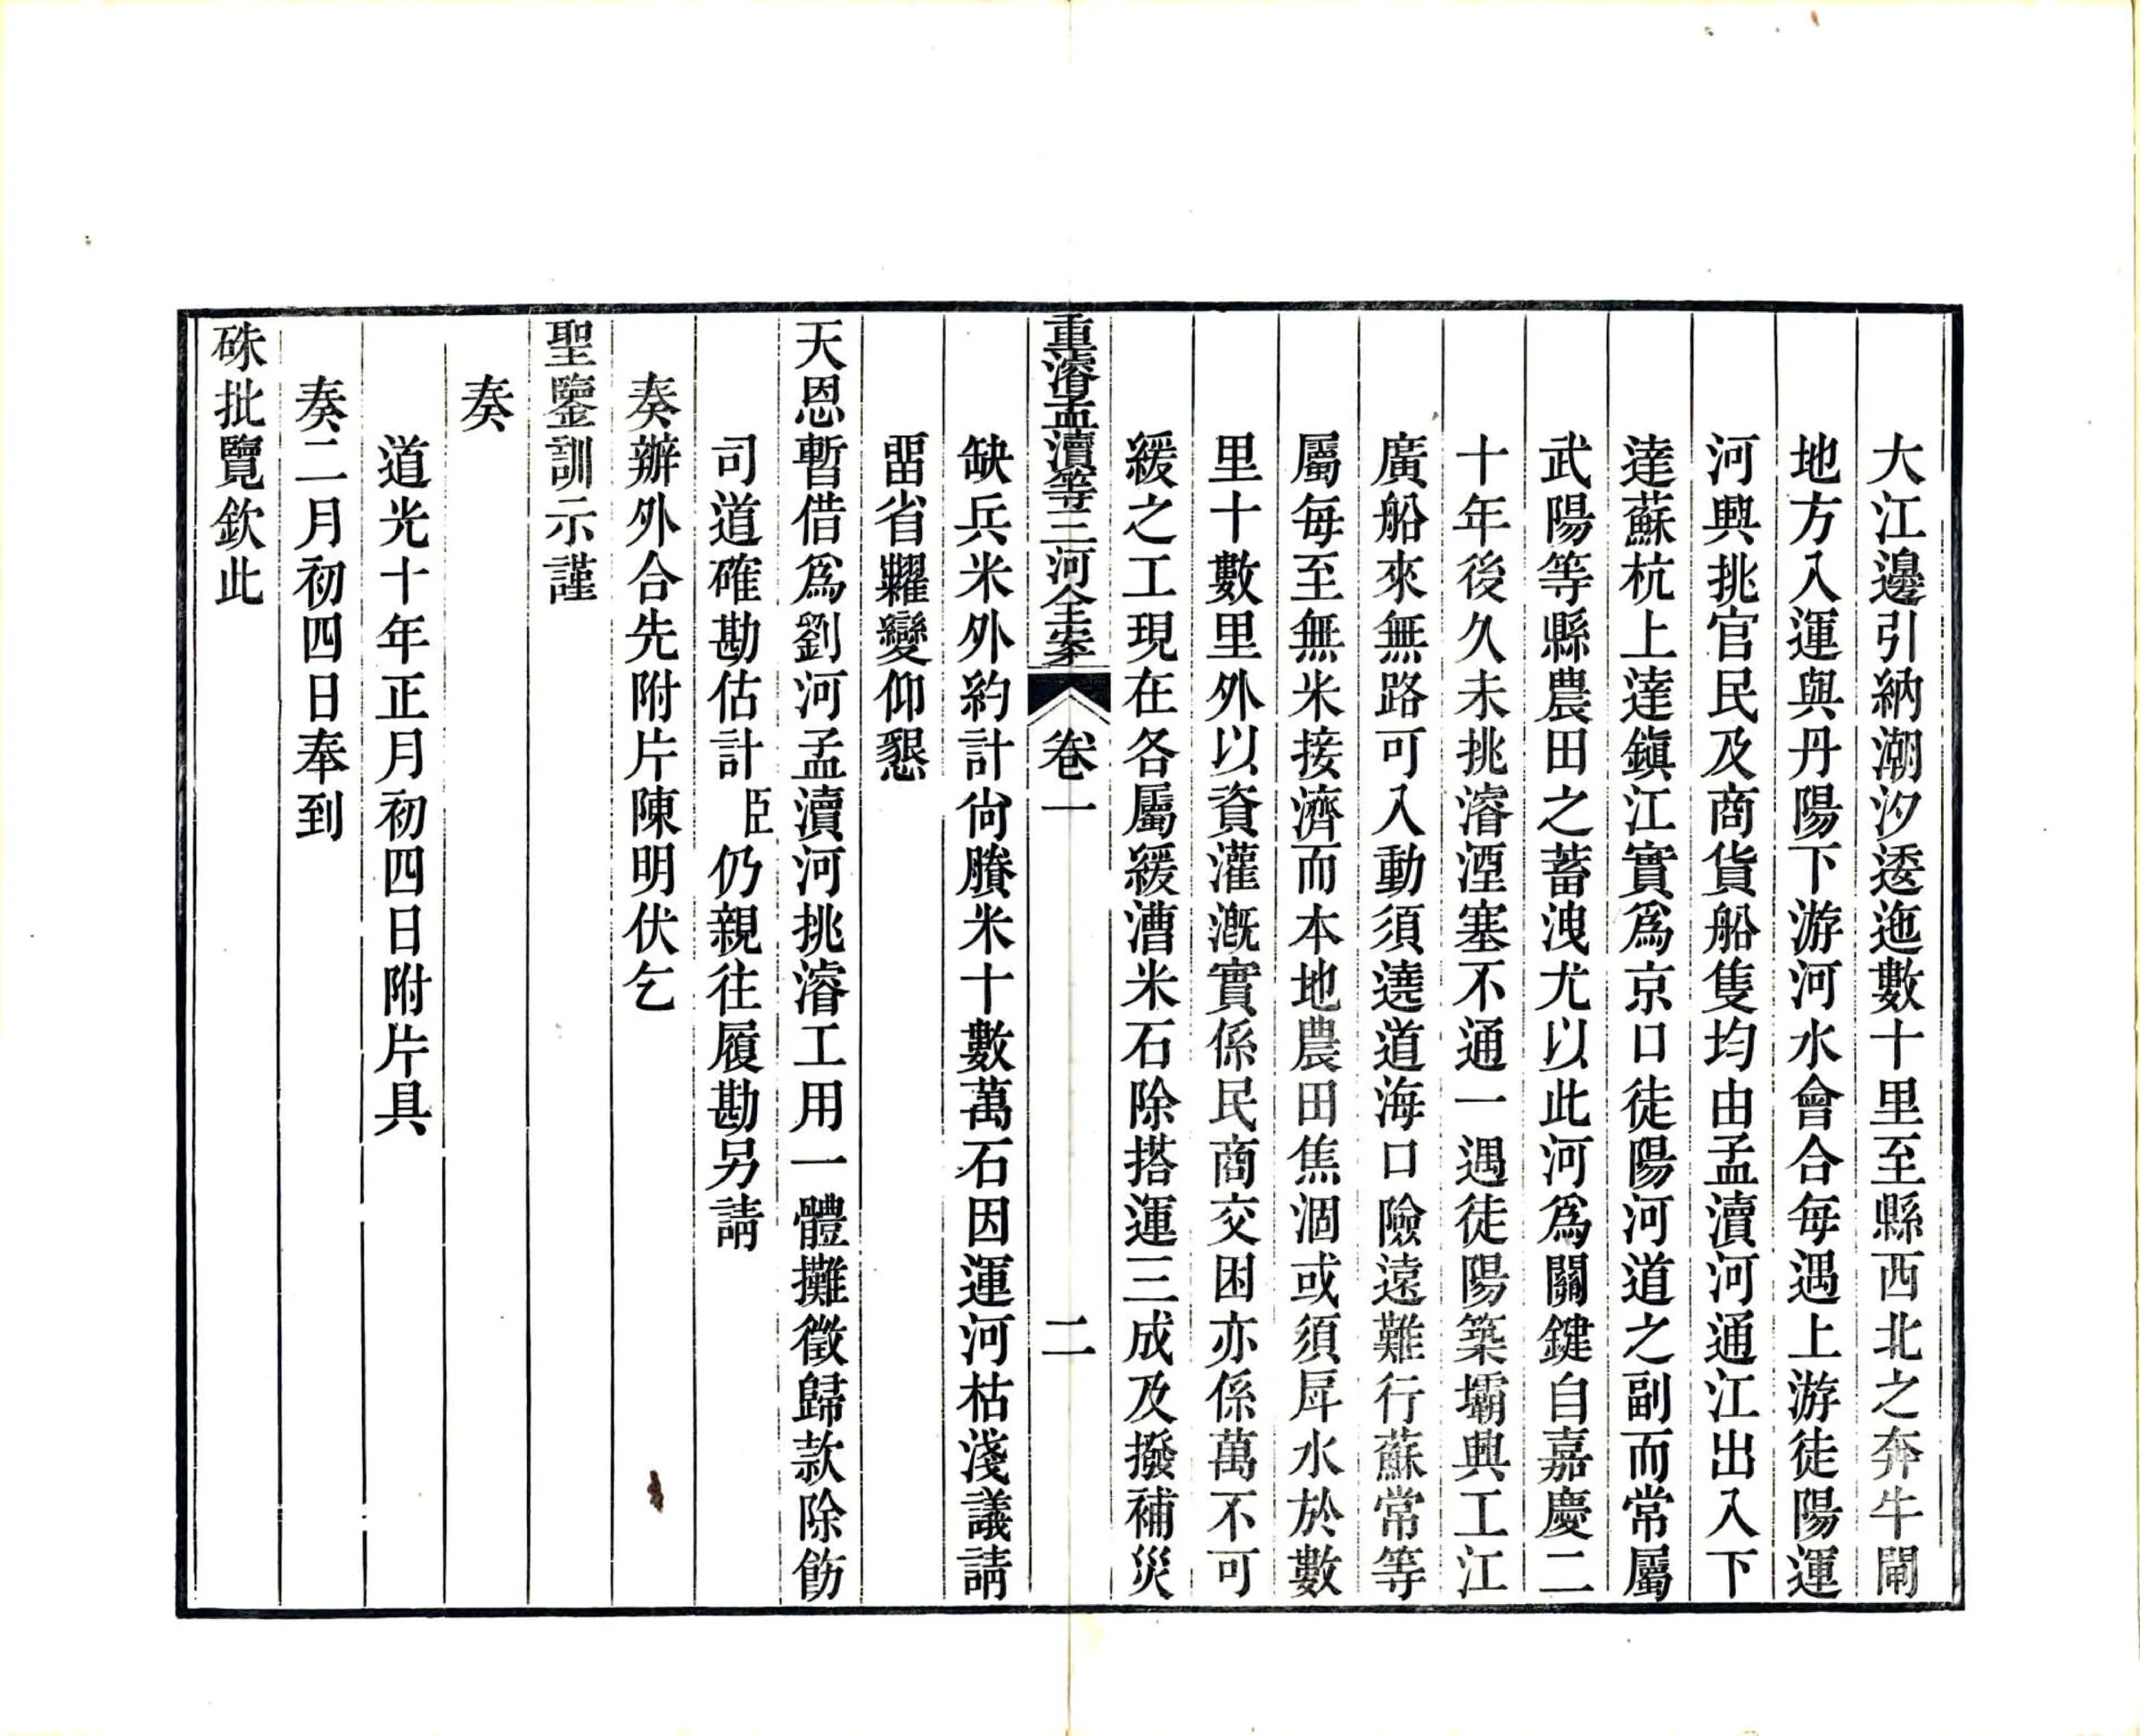 大江邊引納潮汐逶迤數十里至縣西北之奔牛閘
地方入運與丹陽下游河水會合每遇上游徒陽運
河興挑官民及商貨船隻均由孟瀆河通江出入下
達蘇杭上達鎭江實爲京口徒陽河道之副而常屬
武陽等縣農田之蓄洩尤以此河爲關鍵自嘉慶二
十年後久未挑濬湮塞不通一遇徒陽築壩興工江
廣船來無路可入動須遶道海口險遠難行蘇常等
屬每至無米接濟而本地農田焦涸或須戽水於數
里十數里外以資灌漑實係民商交困亦係萬不可
緩之工現在各屬緩漕米石除搭運三成及撥補災
重濬孟瀆等三河全案 卷一 二
缺兵米外約計尙賸米十數萬石因運河枯淺議請
畱省糶變仰懇
天恩暫借爲劉河孟瀆河挑濬工用一體攤徵歸款除飭
司道確勘估計臣仍親往履勘另請
奏辦外合先附片陳明伏乞
聖鑒訓示謹
奏
道光十年正月初四日附片具
奏二月初四日奉到
硃批覽欽此